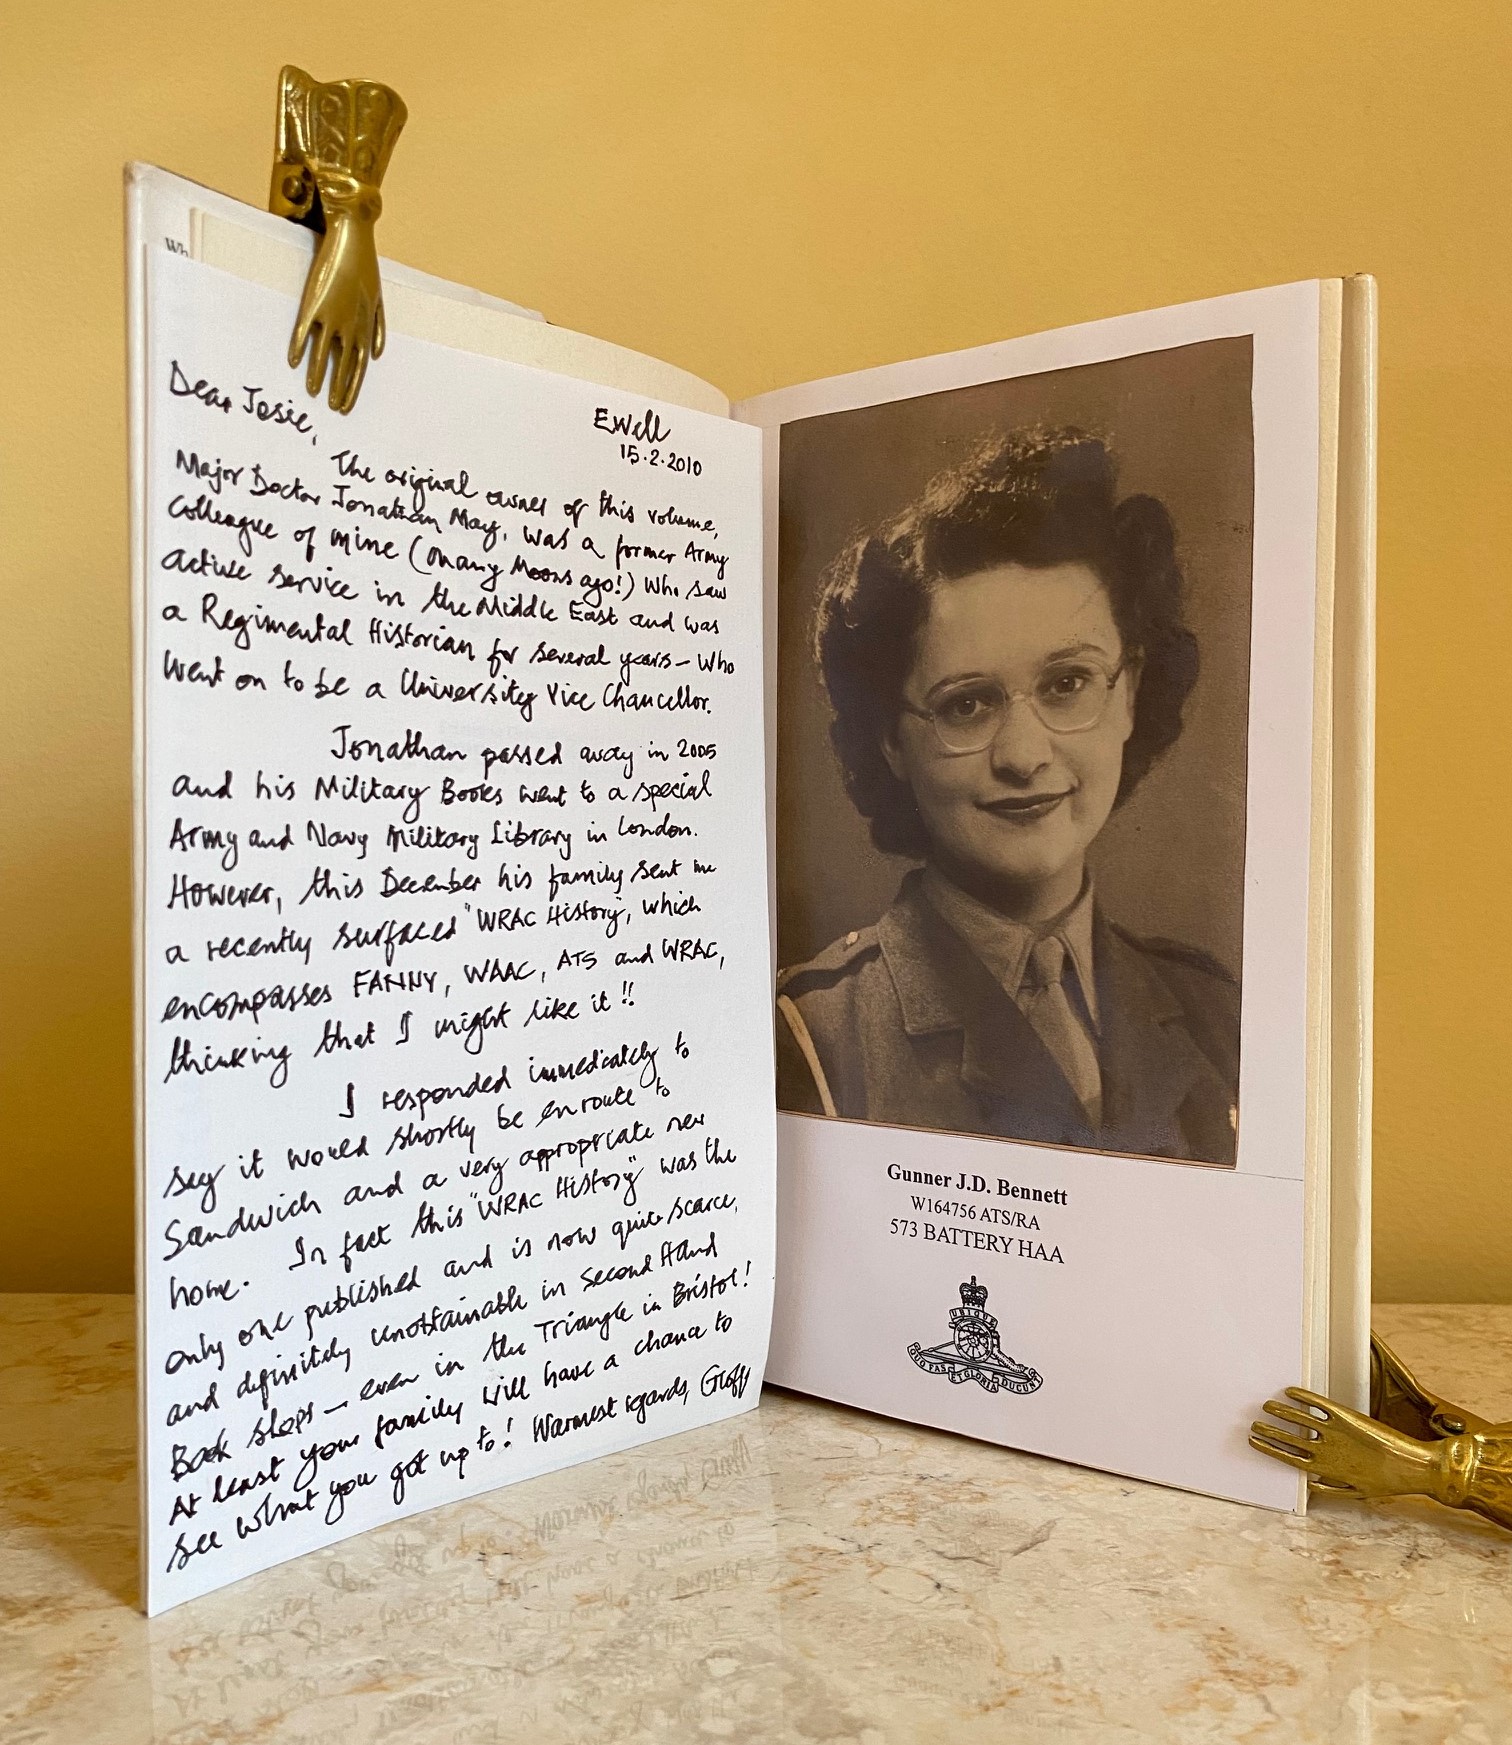 Wh
Dear Josie,
Ewell
15.2.2010
The original owner of this volume,
Major Doctor Jonathan May, was a former Army
Colleague of mine (many Moons ago!) Who saw
active service in the Middle East and was
a Regimental Historian for several years — who
went on to be a University Vice Chancellor.
Jonathan passed away in 2005
and his Military Books went to a special
Army and Navy Military Library in London.
However, this December his family sent me
a recently surfaced "WRAC History", which
encompasses FANNY, WAAC, ATS and WRAC,
thinking that I might like it!!
I responded immediately to
say it would shortly be en route to
Sandwich and a very appropriate new
home. In fact this "WRAC History" was the
only one published and is now quite scarce,
and definitely unobtainable in Second Hand
Book shops — even in the Triangle in Bristol!
At least your family will have a chance to
see what you got up to! Warmest regards, Geoff
Gunner J.D. Bennett
W164756 ATS/RA
573 BATTERY HAA
UBIQUE
QUO FAS ET GLORIA DUCUNT